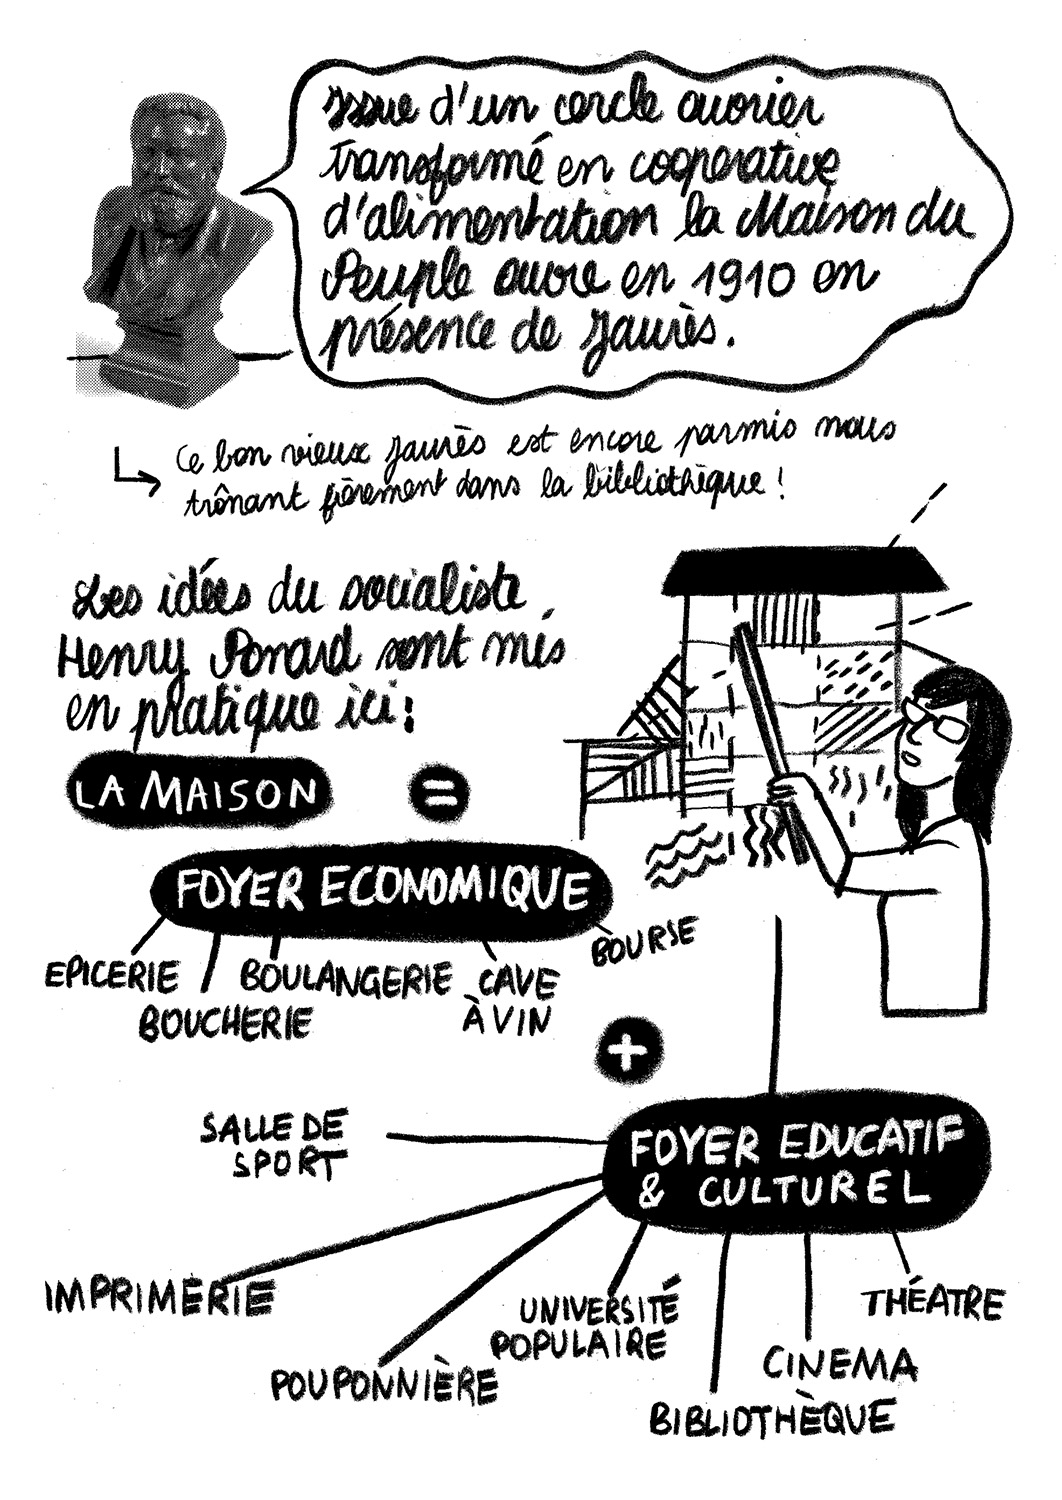 Issue d'un cercle ouvrier
transformé en cooperative
d'alimentation la Maison du
Peuple ouvre en 1910 en
présence de Jaurès.
Ce bon vieux Jaurès est encore parmis nous
trônant fièrement dans la bibliothèque !
Les idées du socialiste
Henry Ponard sont mis
en pratique ici :
LA MAISON =
FOYER ECONOMIQUE
BOURSE
EPICERIE BOULANGERIE CAVE
BOUCHERIE À VIN
+
SALLE DE
SPORT
FOYER EDUCATIF
& CULTUREL
IMPRIMERIE
UNIVERSITÉ
POPULAIRE
THÉATRE
POUPONNIÈRE
CINEMA
BIBLIOTHÈQUE